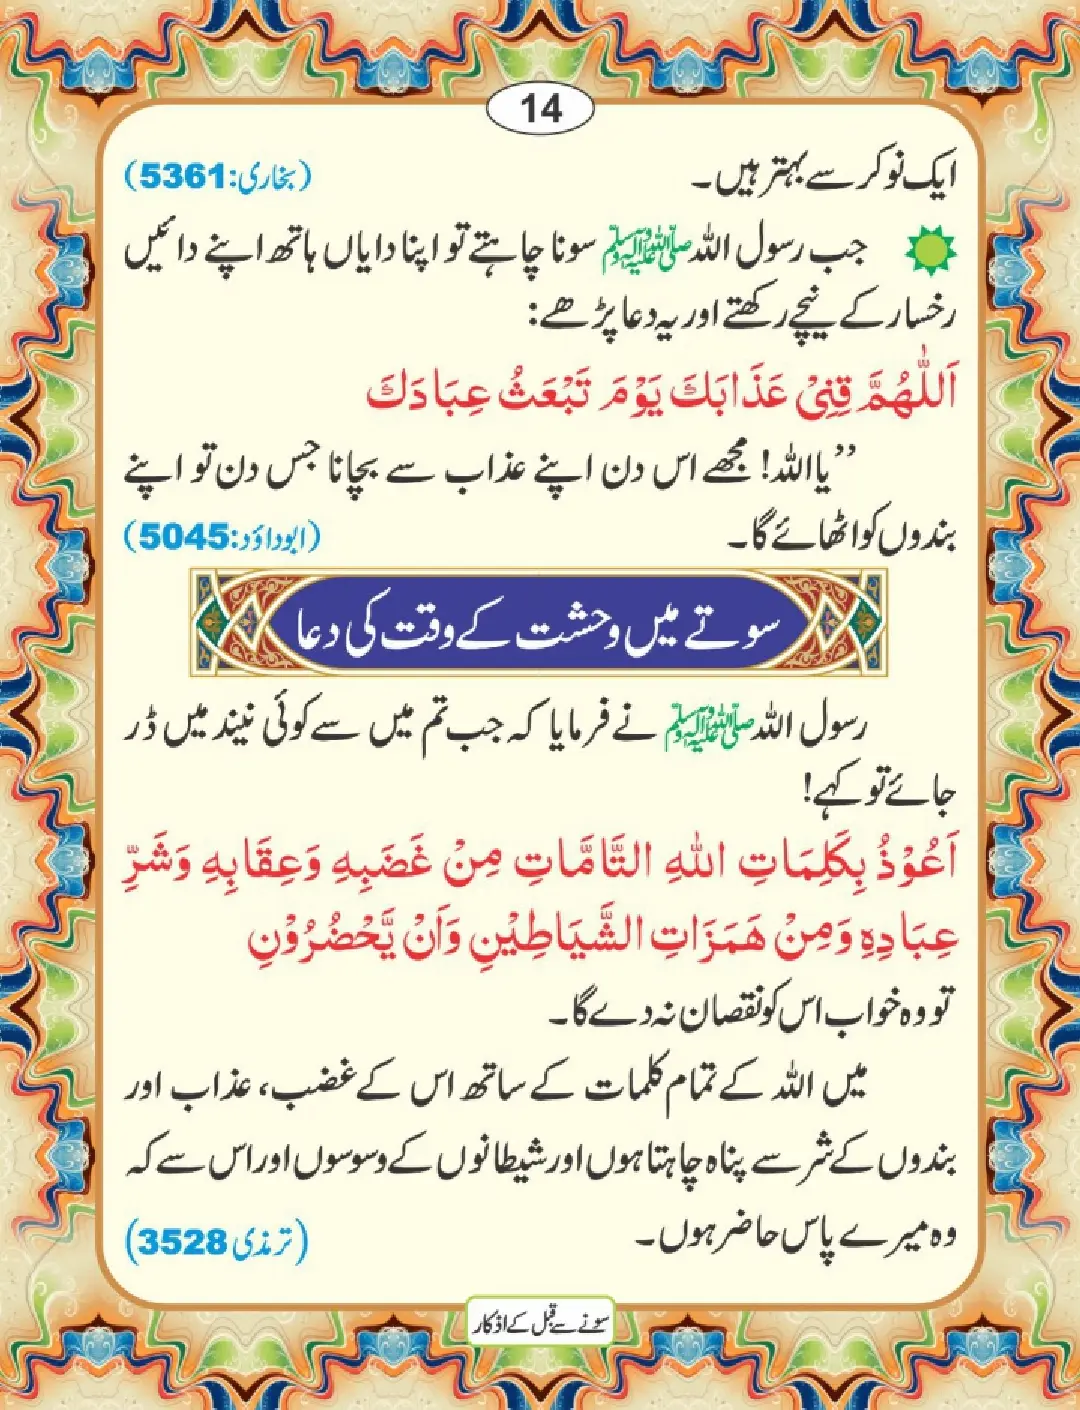 14
ایک نوکر سے بہتر ہیں۔ (بخاری:5361)
جب رسول اللہ ﷺ سونا چاہتے تو اپنا دایاں ہاتھ اپنے دائیں
رخسار کے نیچے رکھتے اور یہ دعا پڑھے:
اَللّٰهُمَّ قِنِیْ عَذَابَكَ یَوْمَ تَبْعَثُ عِبَادَكَ
’’یااللہ! مجھے اس دن اپنے عذاب سے بچانا جس دن تو اپنے
بندوں کو اٹھائے گا۔ (ابوداؤد:5045)
سوتے میں وحشت کے وقت کی دعا
رسول اللہ ﷺ نے فرمایا کہ جب تم میں سے کوئی نیند میں ڈر
جائے تو کہے!
اَعُوْذُ بِكَلِمَاتِ اللهِ التَّامَّاتِ مِنْ غَضَبِهِ وَعِقَابِهِ وَشَرِّ
عِبَادِهِ وَمِنْ هَمَزَاتِ الشَّیَاطِیْنِ وَاَنْ یَّحْضُرُوْنِ
تو وہ خواب اس کو نقصان نہ دے گا۔
میں اللہ کے تمام کلمات کے ساتھ اس کے غضب، عذاب اور
بندوں کے شر سے پناہ چاہتا ہوں اور شیطانوں کے وسوسوں اور اس سے کہ
وہ میرے پاس حاضر ہوں۔ (ترمذی 3528)
سونے سے قبل کے اذکار